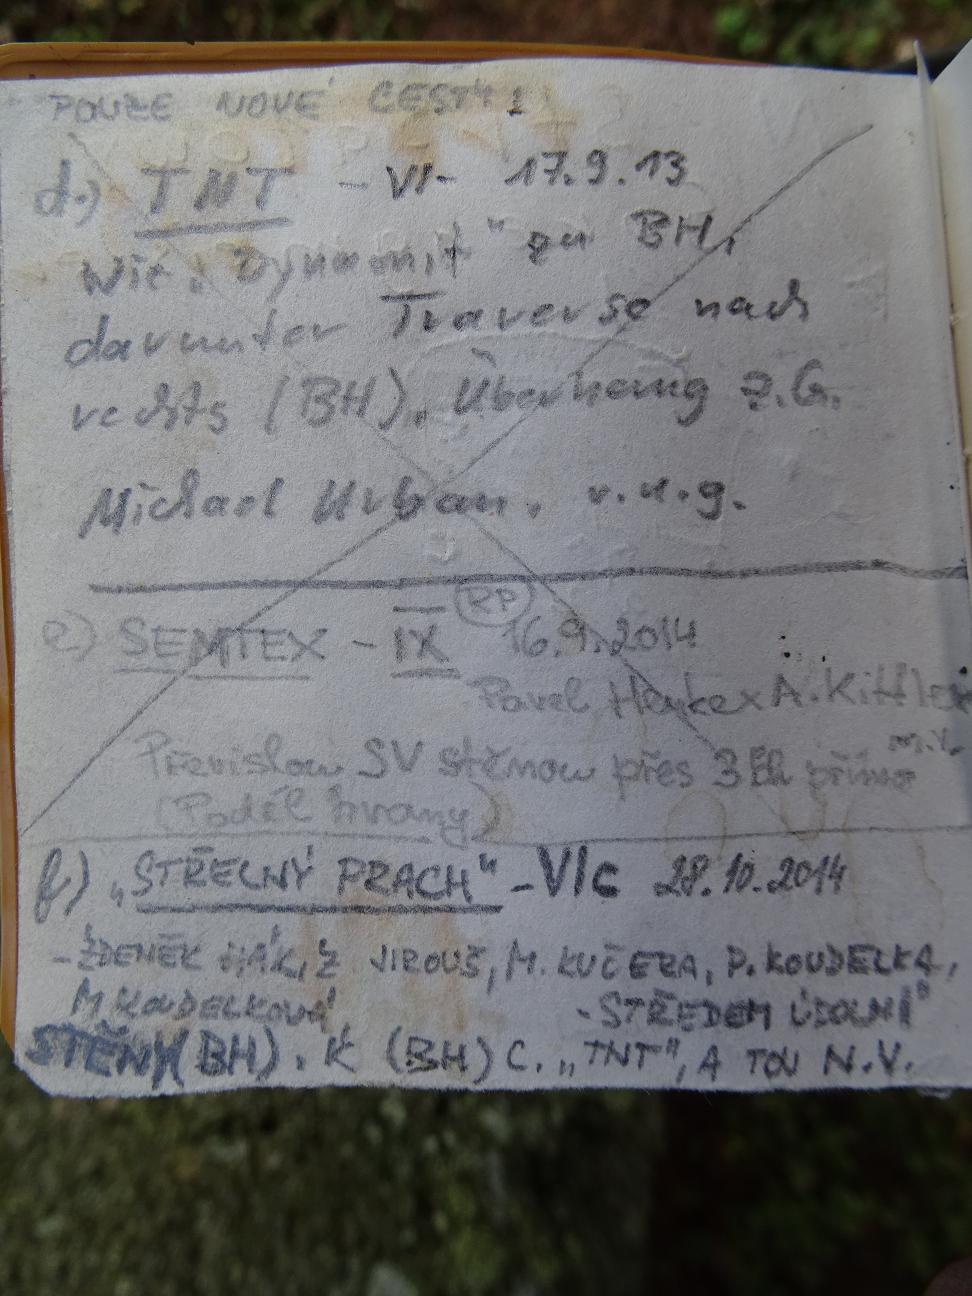 POUZE NOVÉ CESTY:
d.) TNT - VI - 17.9.13
Wie „Dynamit" zu BH,
darunter Traverse nach
rechts (BH). Überhang z.G.
Michael Urban. u.u.g.
RP
e) SEMTEX - IX 16.9.2014
Pavel Henke x A. Kittler
m.l.
Převislou SV stěnou přes 3 BH přímo
(Podél hrany)
f) „STŘELNÝ PRACH" - VIc 28.10.2014
- ZDENĚK HÁK, Z JIROUŠ, M. KUČERA, P. KOUDELKA,
M KOUDELKOVÁ - STŘEDEM ÚDOLNÍ
STĚNY (BH). K (BH) C. „TNT", A TOU N.V.